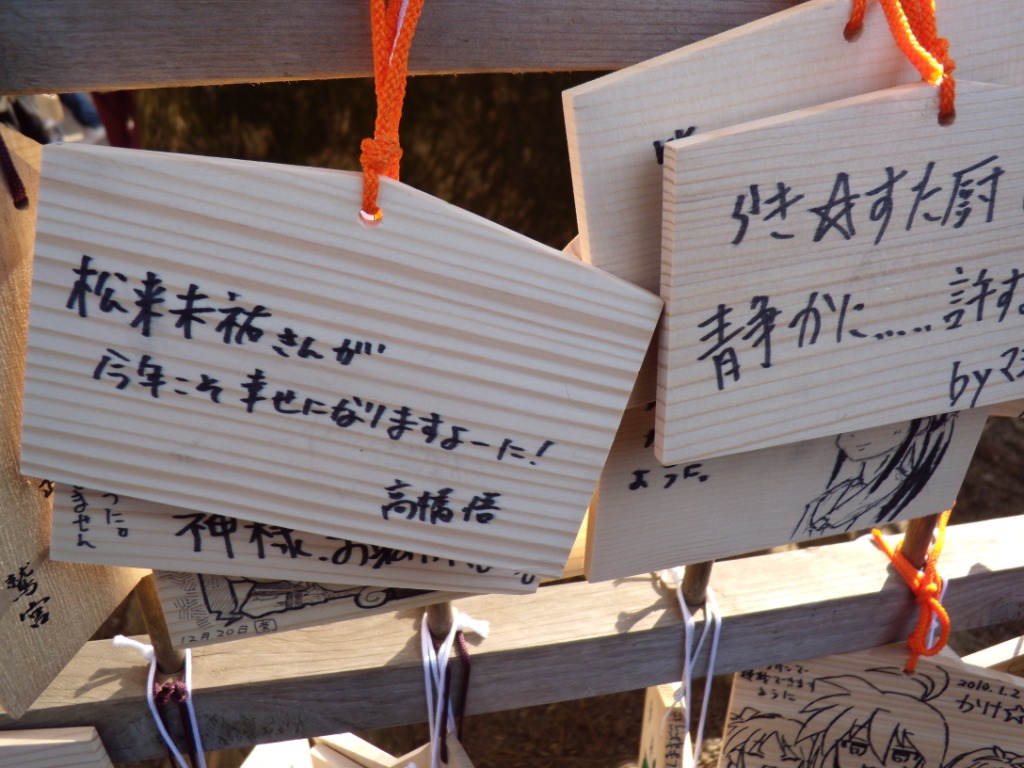 松来未祐さんが
今年こそ幸せになりますよーに!
高橋 悟
らき☆すた厨
青争かに.....許す
by マ
ように。
つた。
ません
神様、お
12月20日
鷲宮
できます
ように
2010.1.2
かけ☆